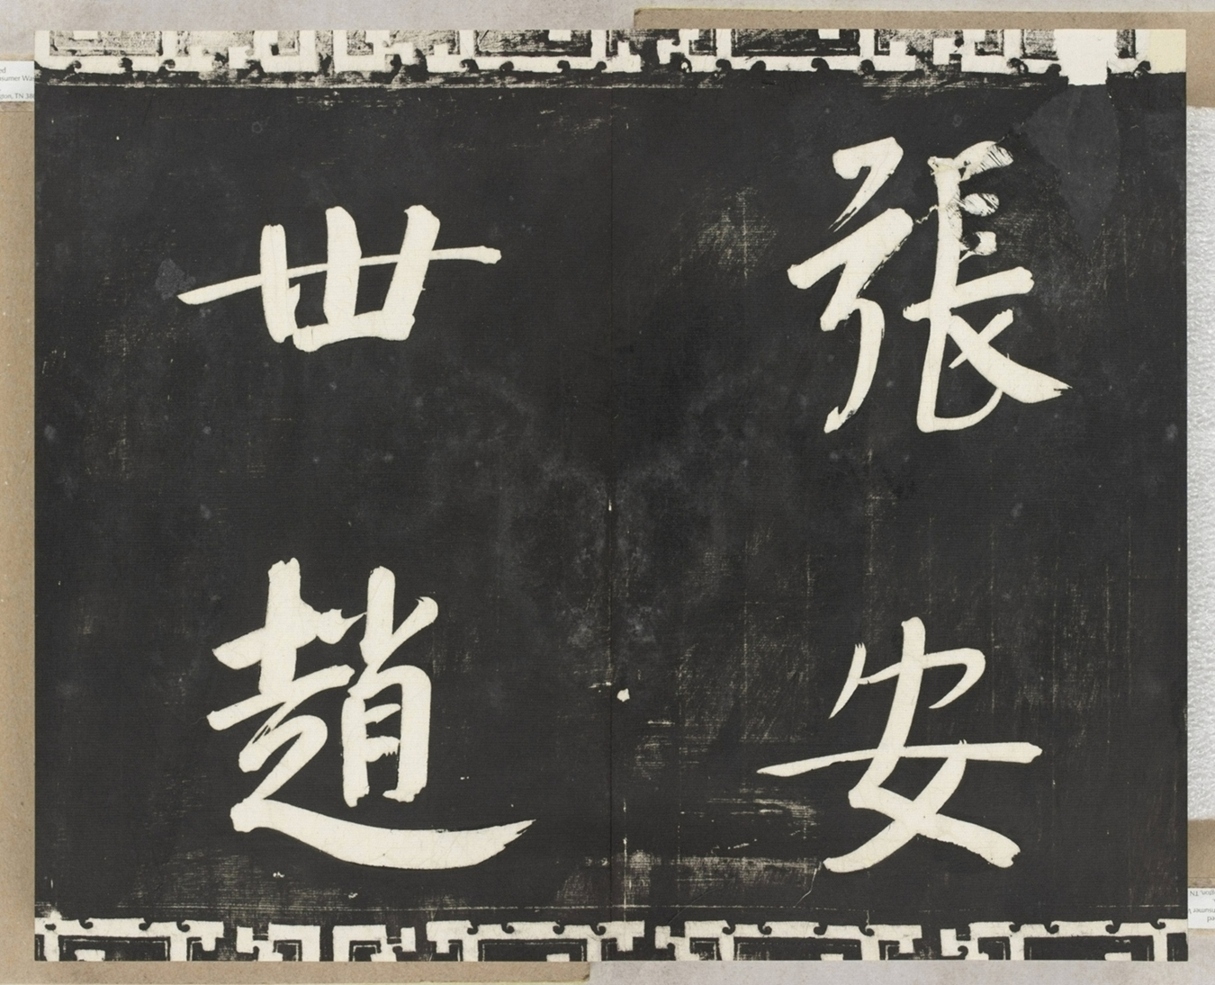 張安
世趙